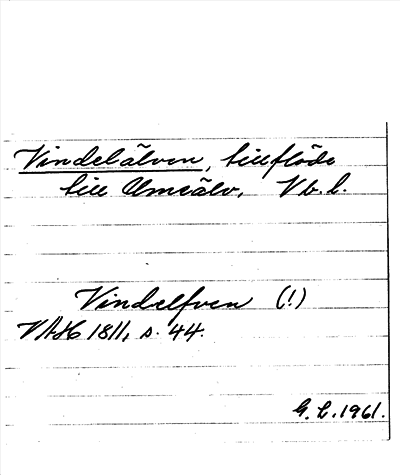 Vindelälven, tillflöde
till Umeälv. Vb. l.
Vindelfven (!)
VAH 1811, s. 44.
G. L. 1961.